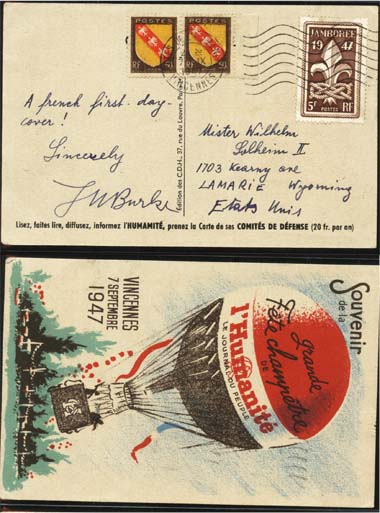 POSTES
RF
POSTES
RF
VINCENNES
JAMBOREE
1947
5F POSTES RF
A french first-day-
cover!
Sincerely
Mister Wilhelm
Solheim II
1703 Kearny ave
LAMARIE Wyoming
Etats Unis
Édition des C.D.H., 37, rue du Louvre, Paris
Lisez, faites lire, diffusez, informez l'HUMANITÉ, prenez la Carte de ses COMITÉS DE DÉFENSE (20 fr. par an)
Souvenir
de la
grande
Fête champêtre
DE
l'Humanité
LE JOURNAL DU PEUPLE
VINCENNES
7 SEPTEMBRE
1947